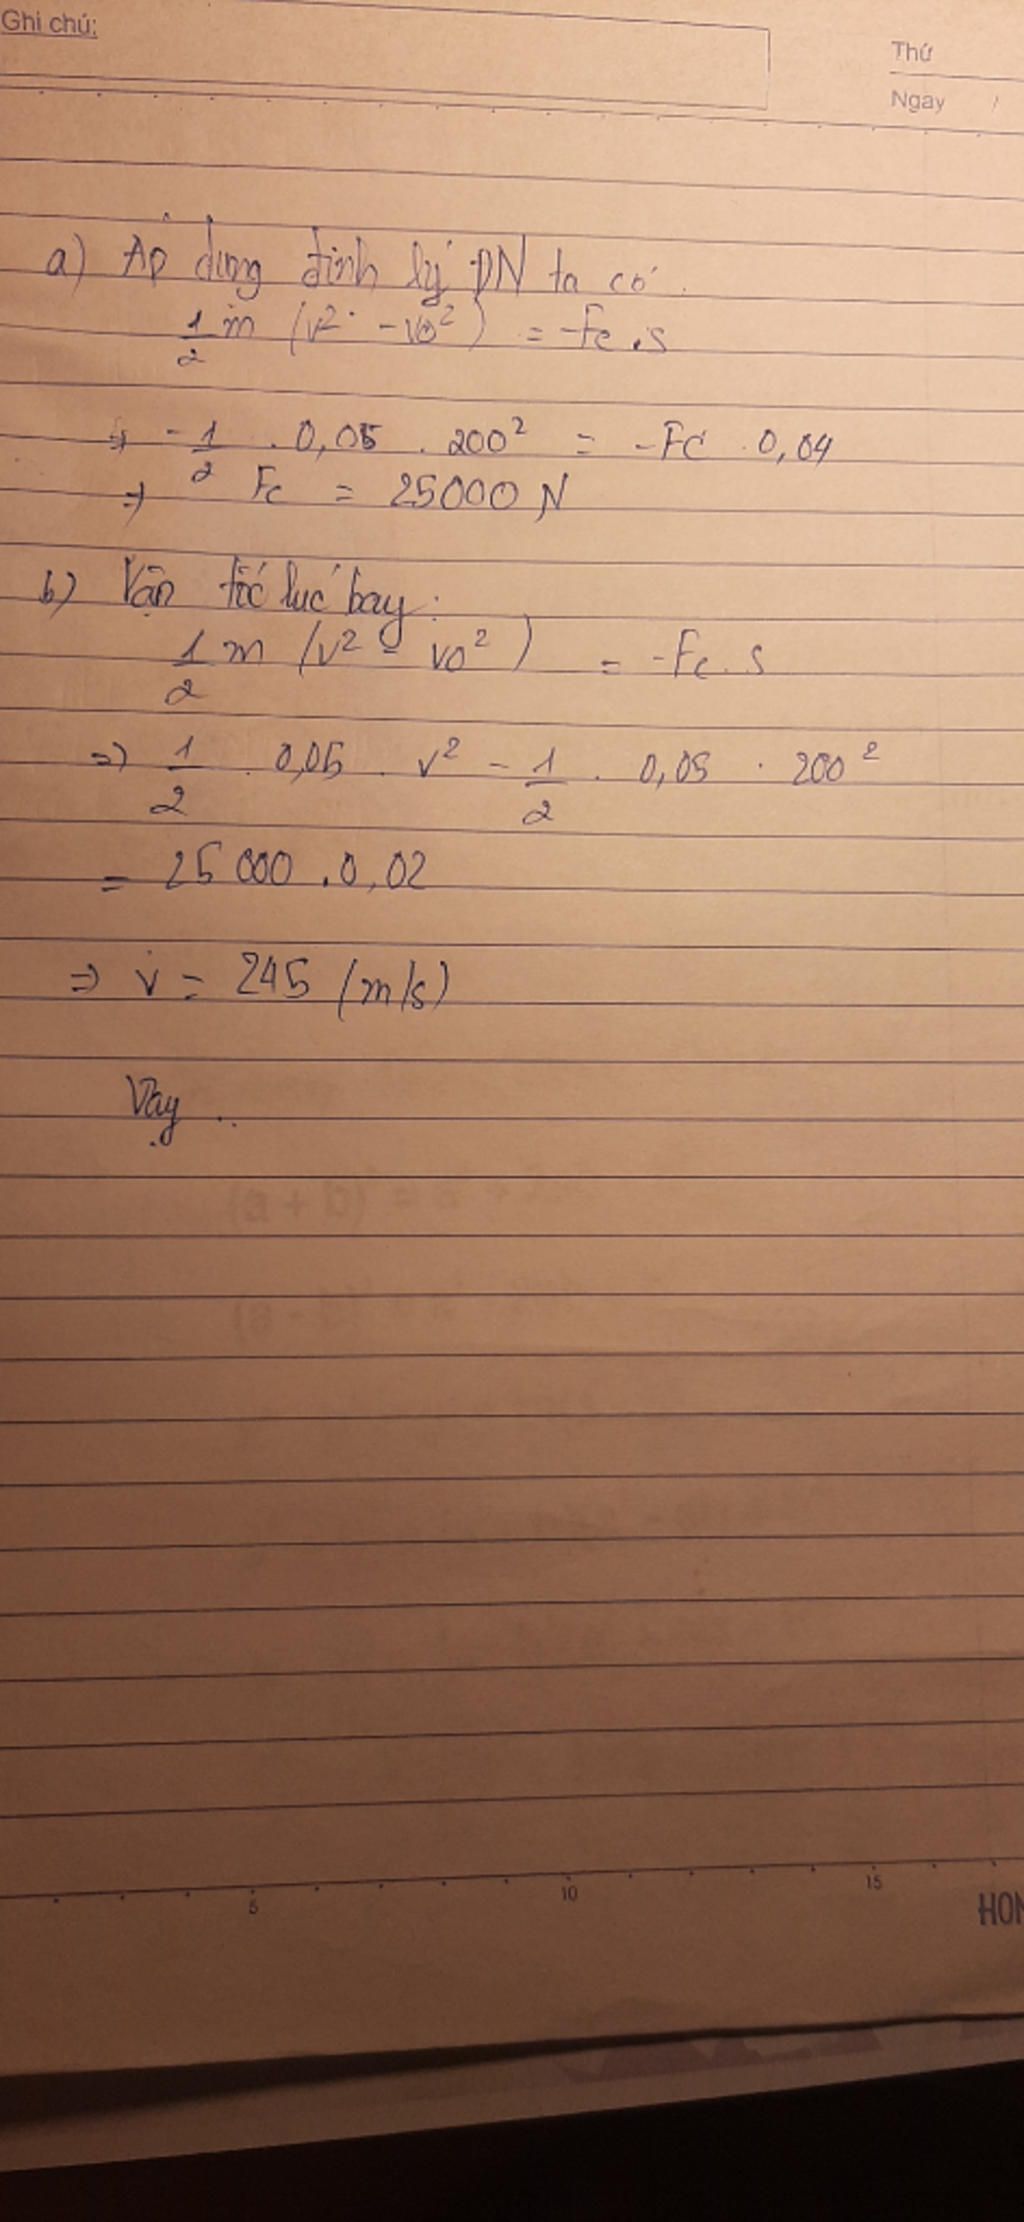 Ghi chú:
Thứ
Ngày /
a) Áp dụng định lý ĐN ta có
1/2 m (v² - v0²) = -Fc.s
=> -1/2 . 0,05 . 200² = -Fc . 0,04
=> Fc = 25000 N
b) Vận tốc lúc bay:
1/2 m (v² - v0²) = -Fc.s
=> 1/2 . 0,05 . v² - 1/2 . 0,05 . 200²
= 25000 . 0,02
=> v = 245 (m/s)
Vậy ..
5 10 15
HON